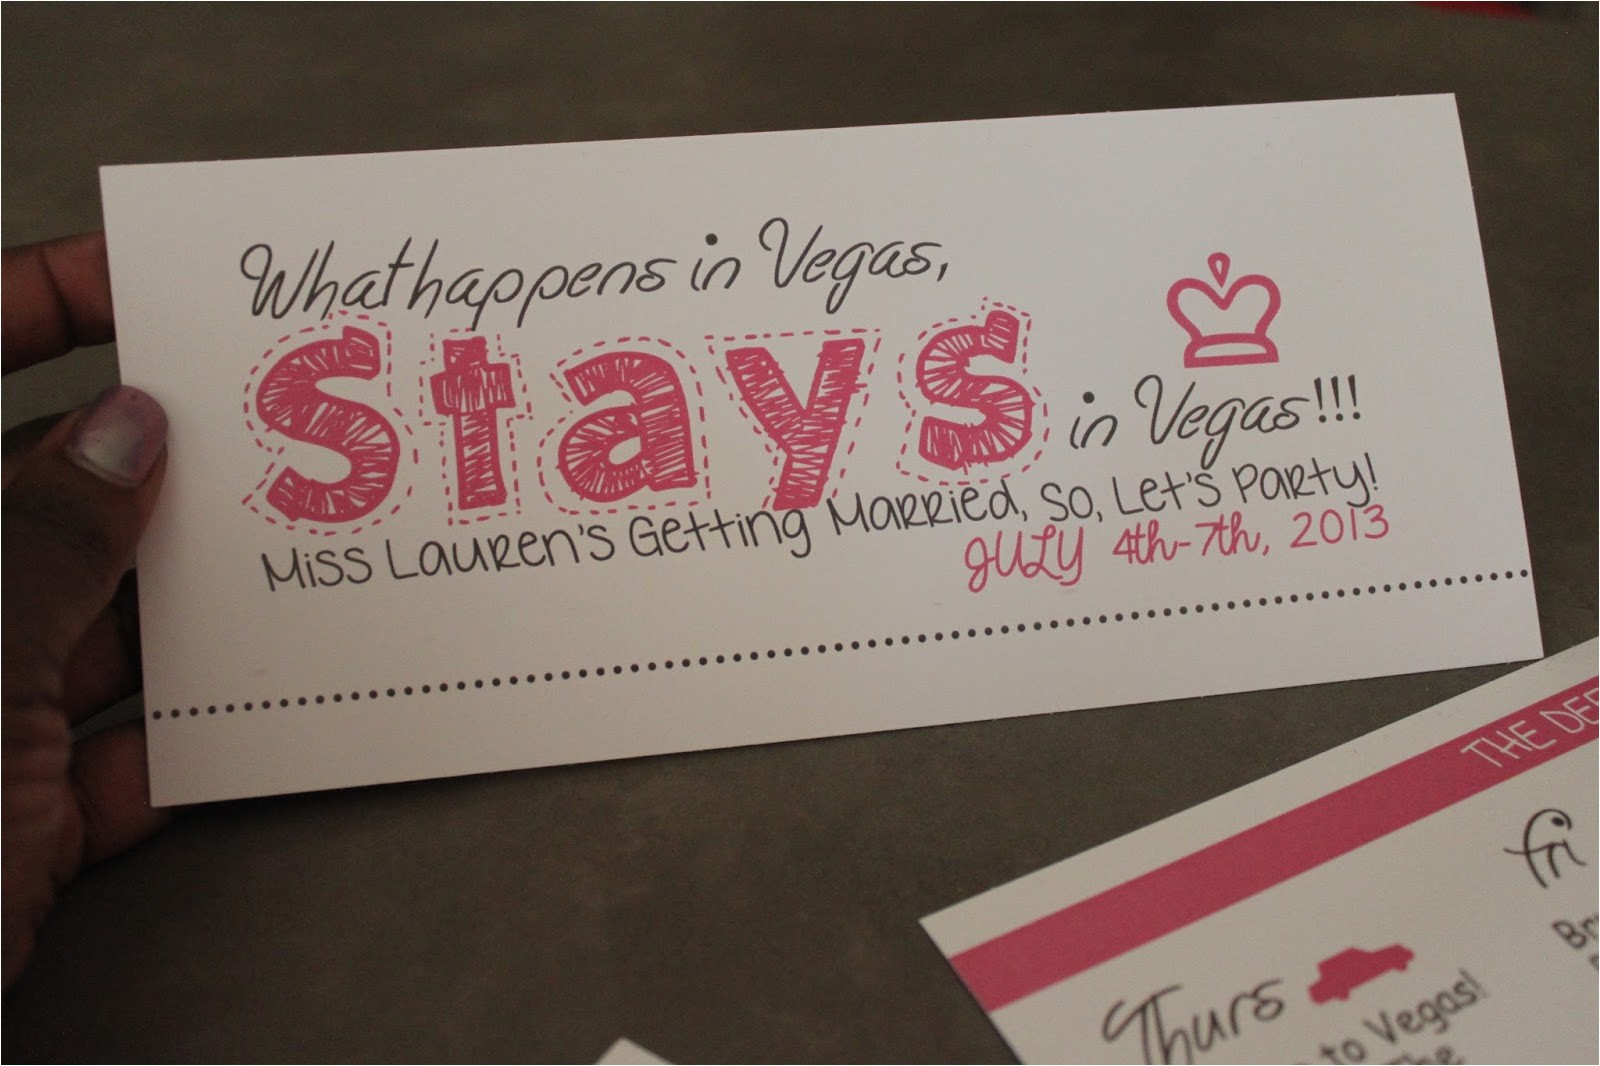 What happens in Vegas,
Stays in Vegas!!!
Miss Lauren's Getting Married, So, Let's Party!
JULY 4th-7th, 2013
THE
Thurs
to Vegas!
fri